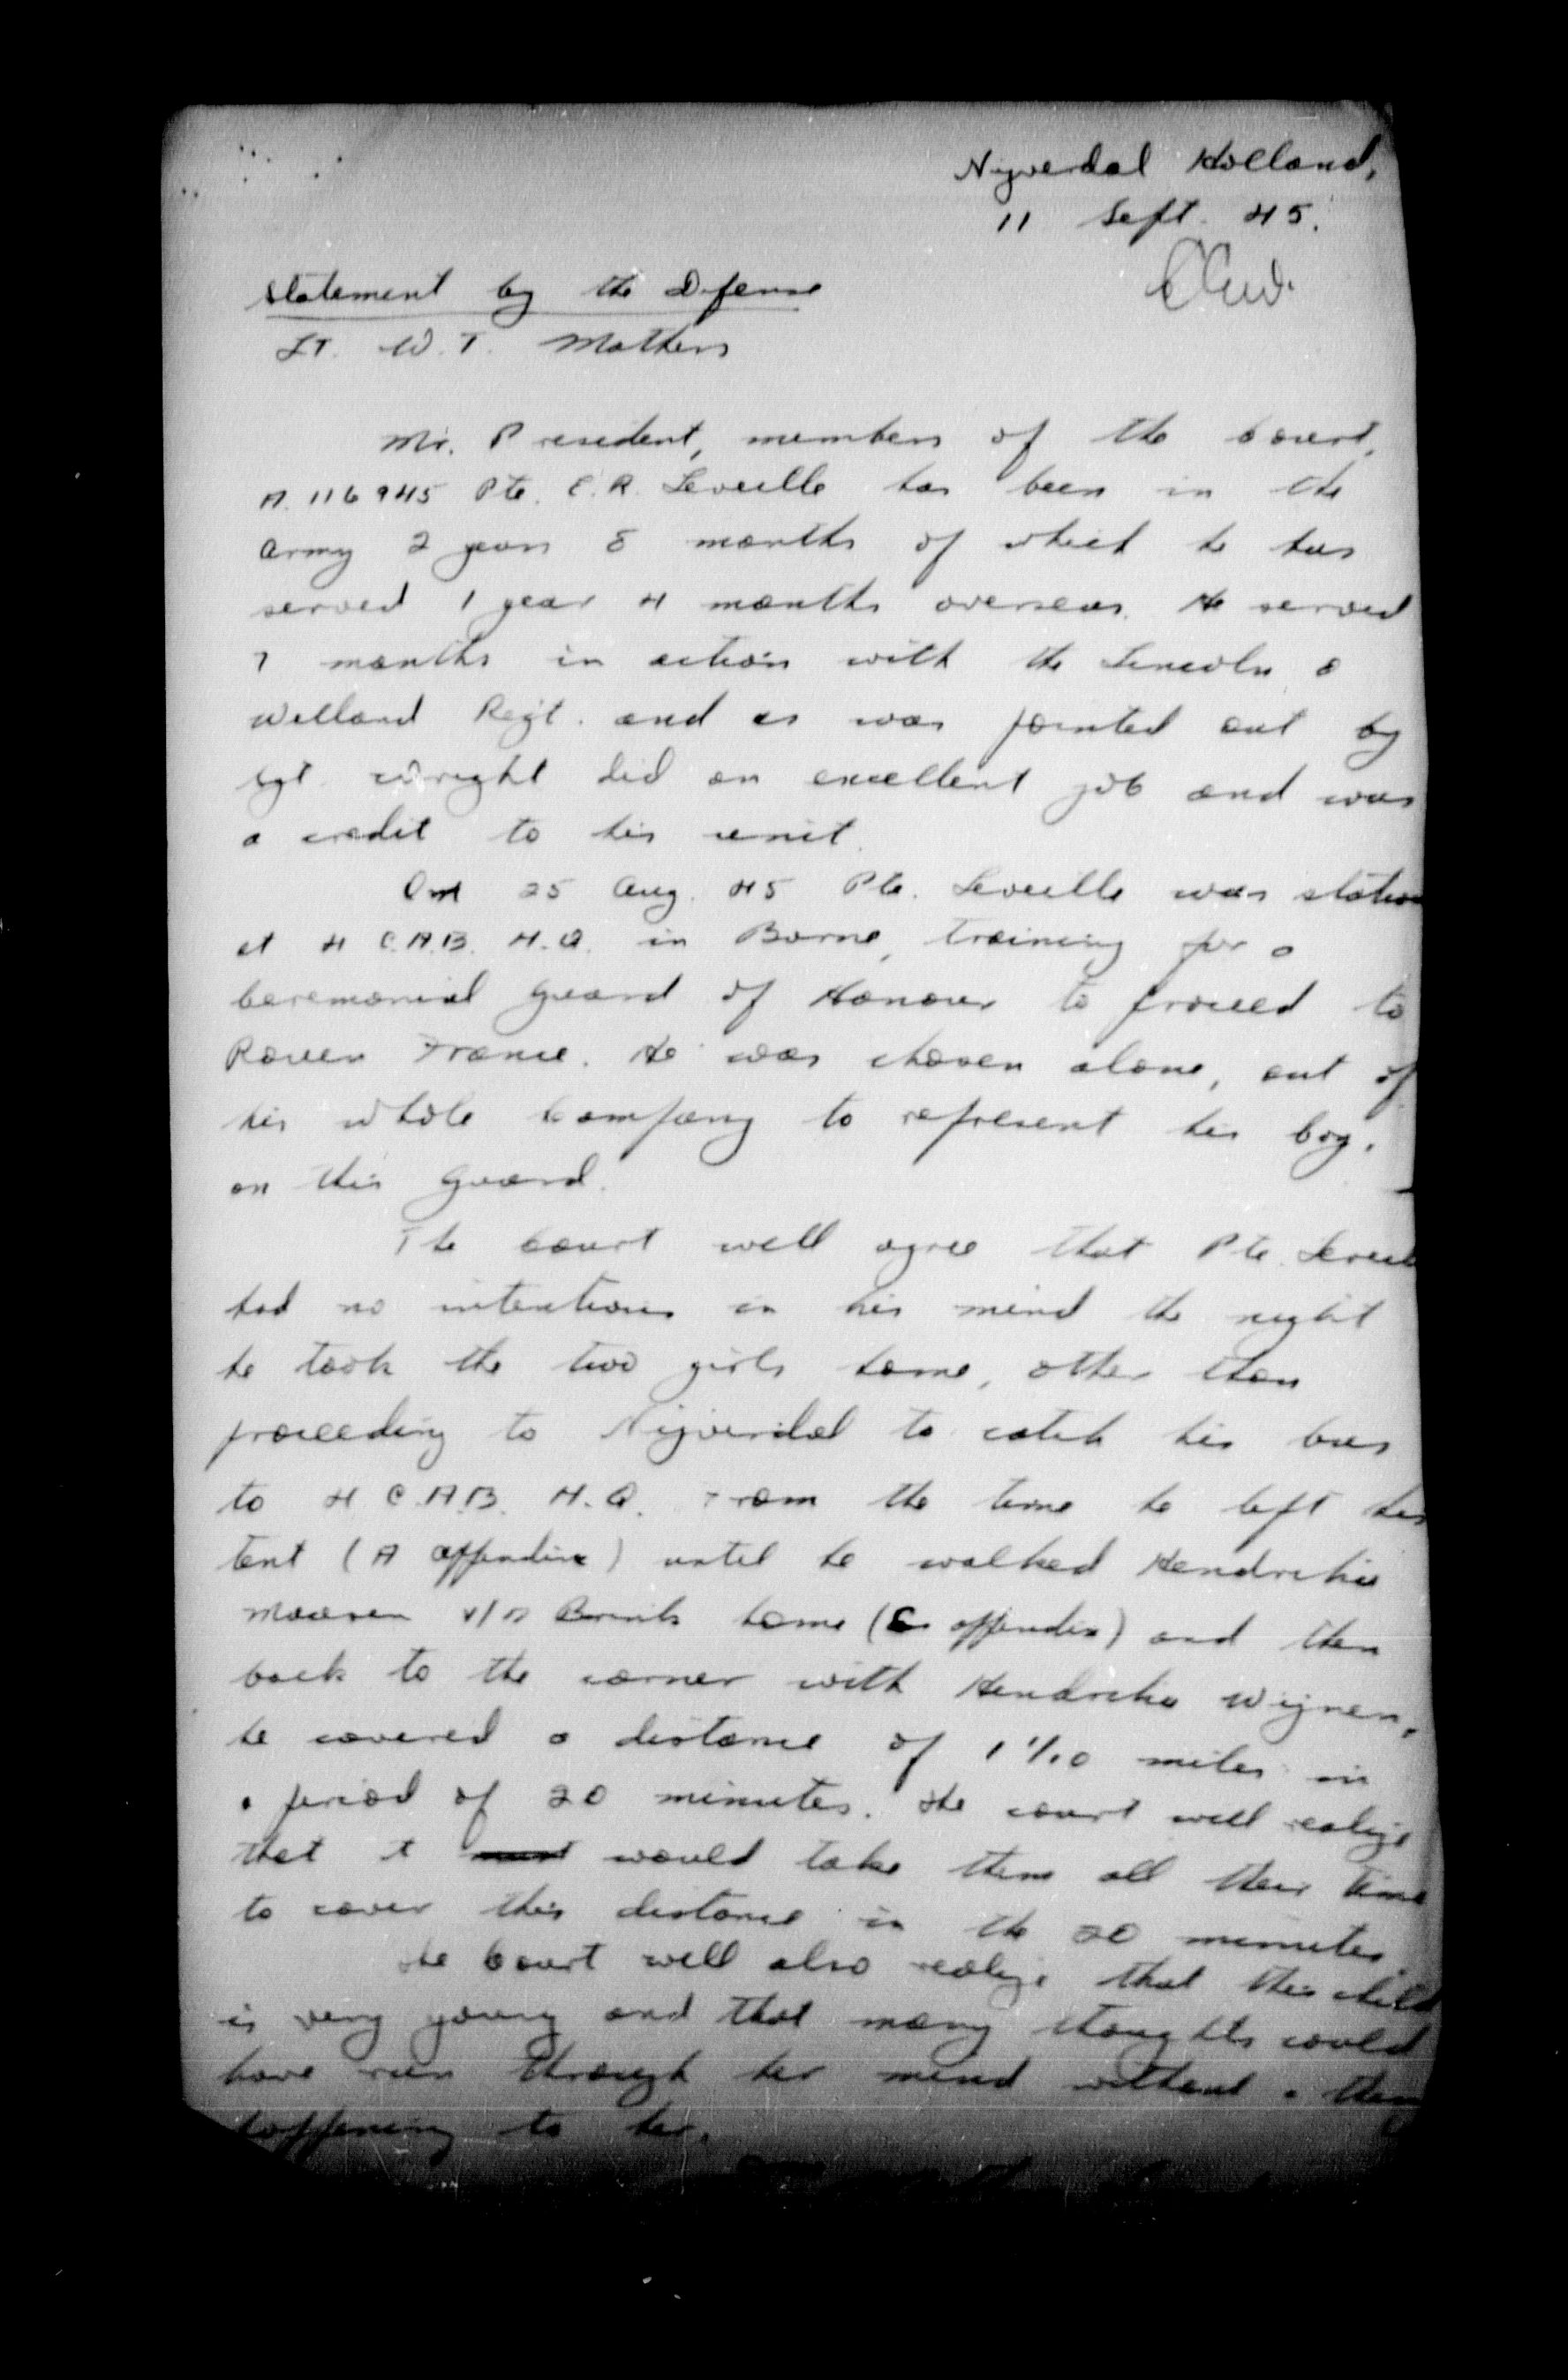 Nijverdal Holland,
11 Sept. 45.
Statement by the Defense
Lt. W. T. Mathers
Mr. President, members of the Court,
A. 116945 Pte. E. R. Leveille has been in the
Army 2 years 8 months of which he has
served 1 year 4 months overseas. He served
7 months in action with the Lincoln &
Welland Regt. and as was pointed out by
Sgt. Wright did an excellent job and was
a credit to his unit.
On 25 Aug. 45 Pte. Leveille was station
at 4 C.A.B. H.Q. in Borne, training for a
Ceremonial Guard of Honour to proceed to
Rouen France. He was chosen alone, out of
his whole Company to represent his Coy.
on this Guard.
The Court will agree that Pte. Leveill
had no intentions in his mind the night
he took the two girls home, other than
proceeding to Nijverdal to catch his bus
to 4 C.A.B. H.Q. From the time he left his
tent (A appendix) until he walked Hendrika
Maaren v/d Brink home (C appendix) and then
back to the corner with Hendrika Wijnen,
he covered a distance of 1 1/10 miles in
a period of 20 minutes. The court will realize
that it would take them all their time
to cover this distance in the 20 minutes.
The Court will also realize that this child
is very young and that many thoughts could
have run through her mind without a thing
happening to her.